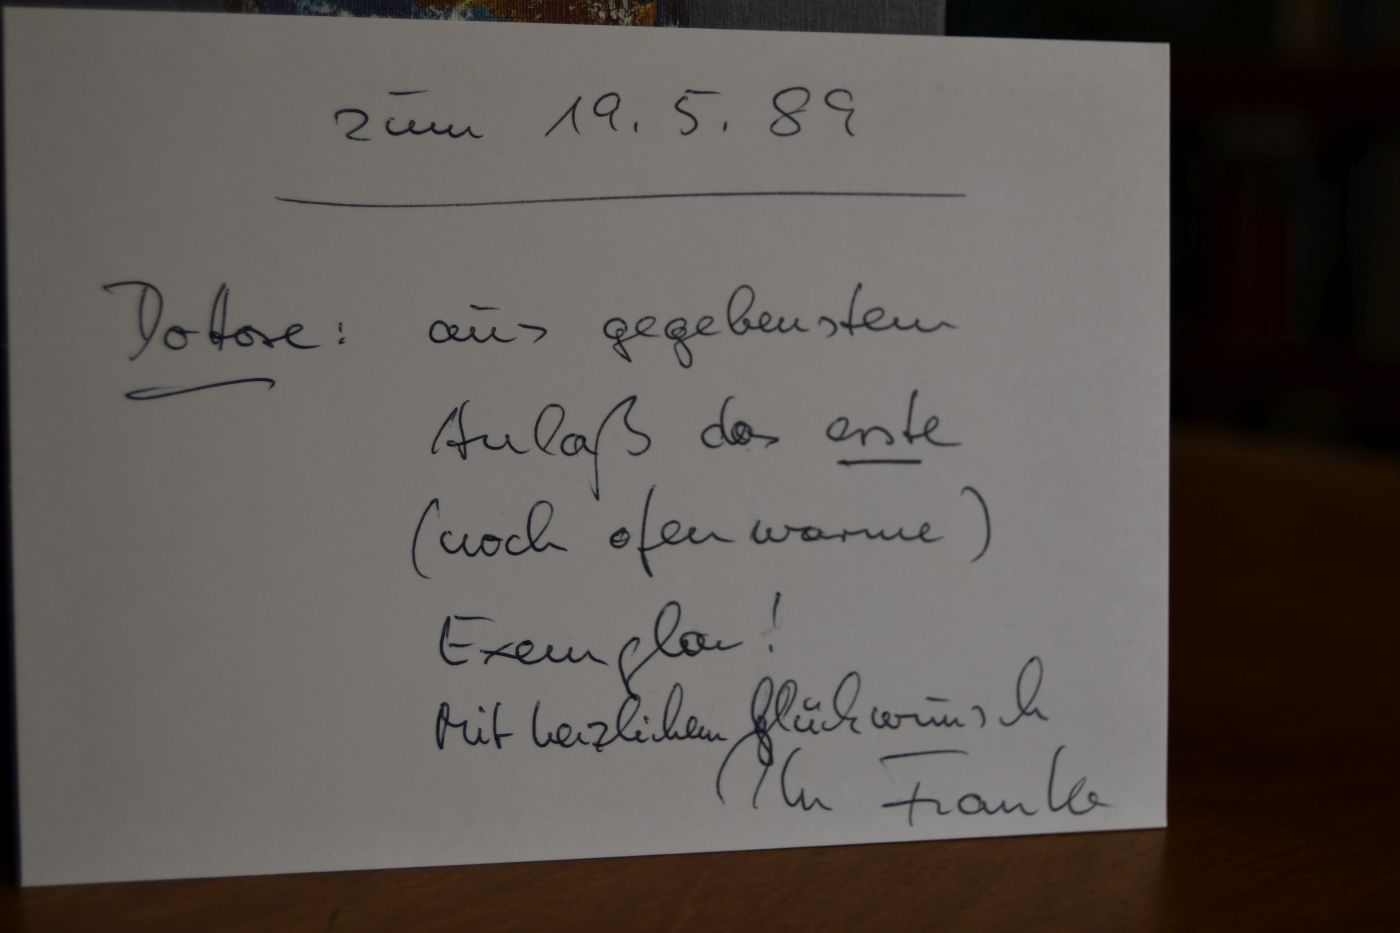 zum 19. 5. 89
Dotore: aus gegebenstem
Anlaß das erste
(noch ofenwarme)
Exemplar!
Mit herzlichem Glückwunsch
Ihr Franke